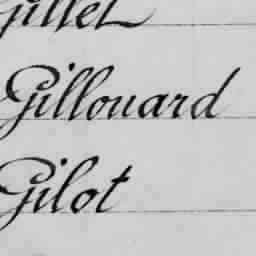 Gillet
Gillouard
Gilot